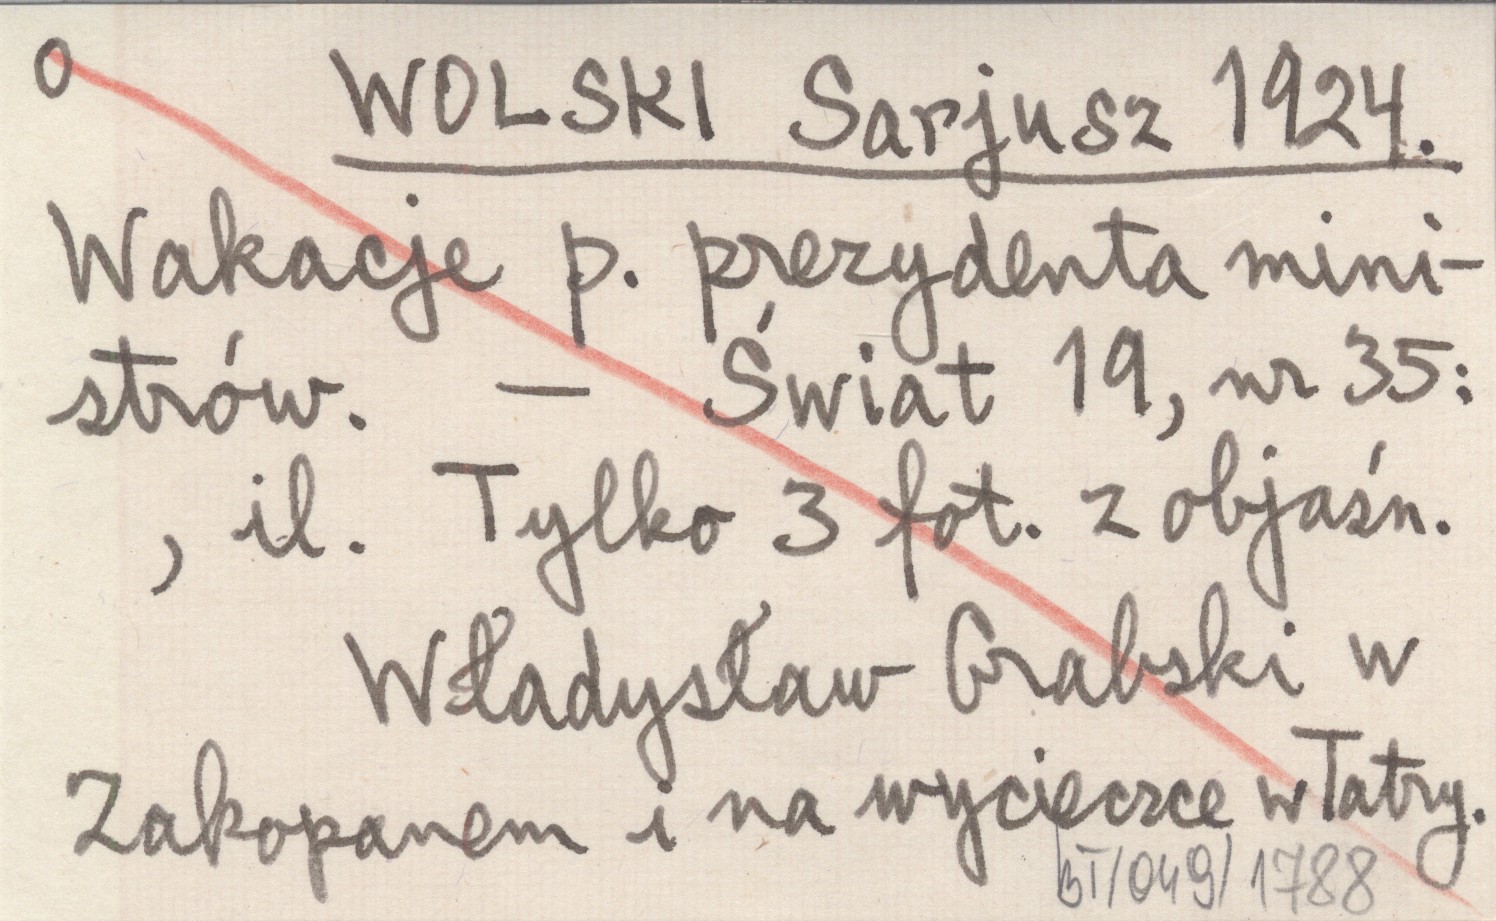 O WOLSKI Sarjusz 1924.
Wakacje p. prezydenta mini-
strów. — Świat 19, nr 35:
, il. Tylko 3 fot. z objaśn.
Władysław Grabski w
Zakopanem i na wycieczce w Tatry.
BT/049/1788